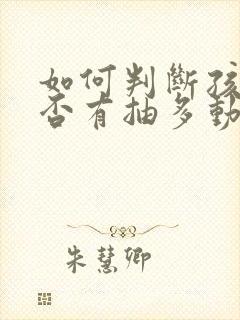 如何判斷孩
否有抽多動
朱慧卿